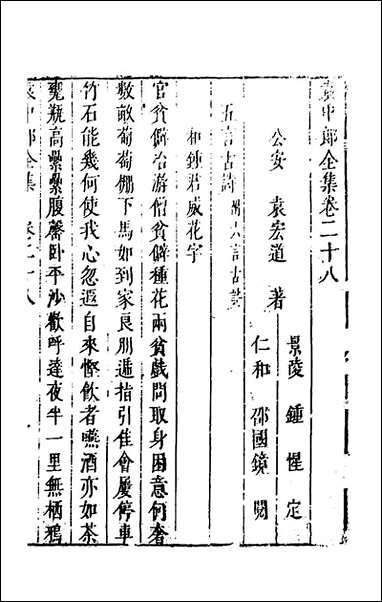 袁中郎全集卷二十八
景陵 鍾惺 定
公安 袁宏道 著
仁和 邵國鏡 閱
五言古詩 附六言古詩
和鍾君威花字
官貧僻冶游僧貧僻種花兩貧戲問取身困意何奢
數畝葡萄棚下馬如到家良朋遞指引佳會屢停車
竹石能幾何使我心忽遐自來慳飲者嚥酒亦如茶
甕瓶高纍纍腹罄卧平沙歡呼達夜半一里無栖鴉
袁中郎全集 卷二十八 一